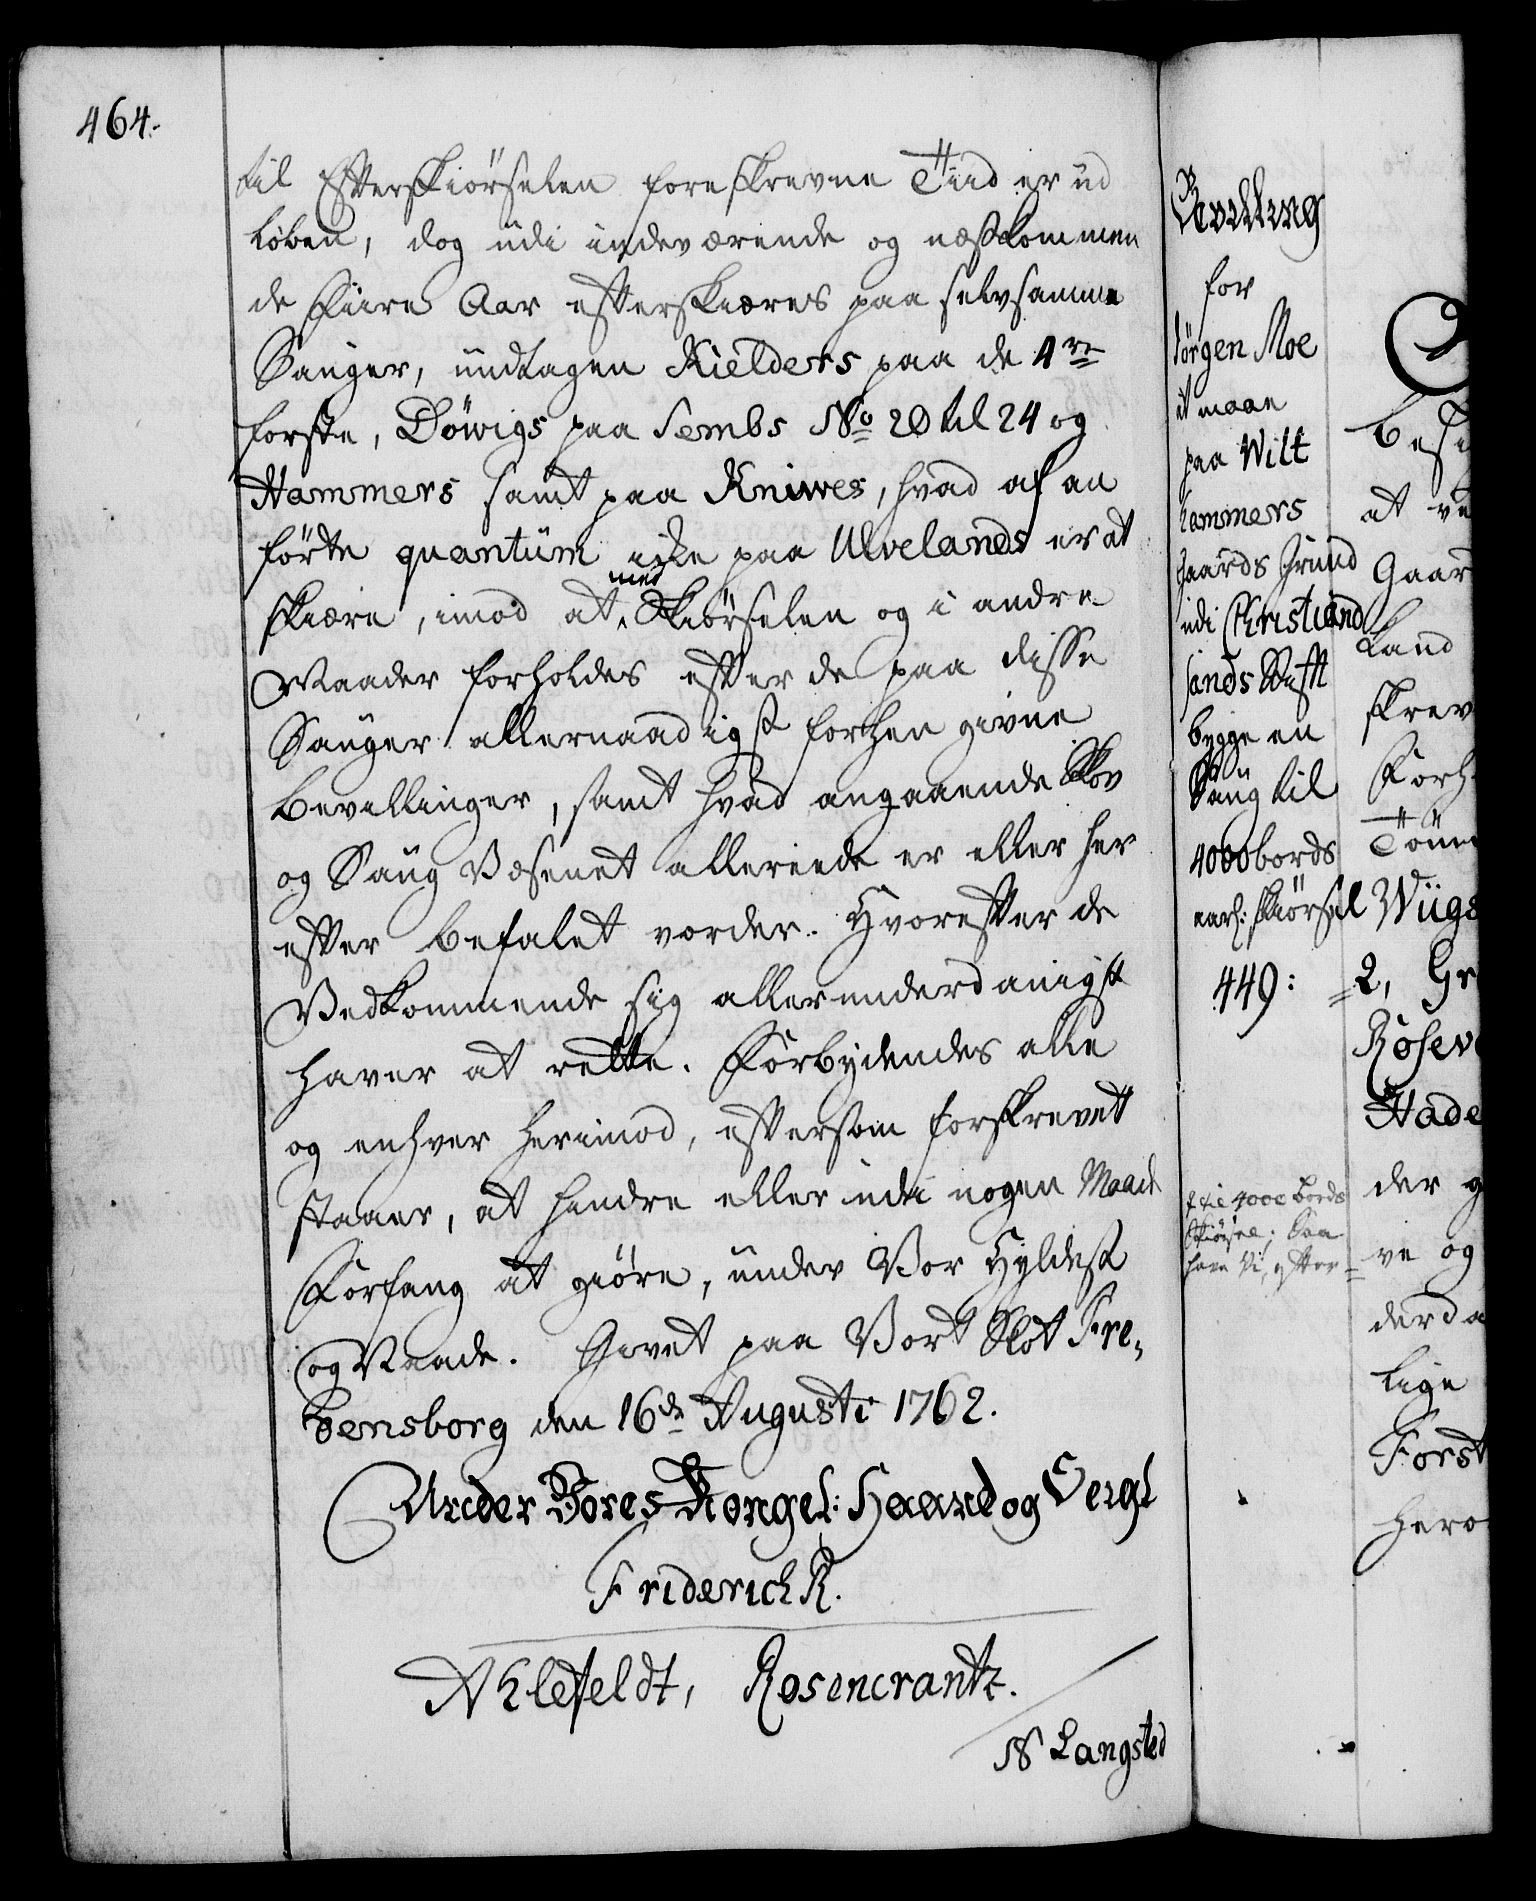 464.
til Efterskiörselen foreskrevne Tiid er ud
löben, dog udi indeværende og næstkommen
de Fiire Aar efterskiæres paa selvsamme
Sauger, undtagen Kielders paa de 4re
forste, Döwigs paa Sembs No 20 til 24 og
Hammers samt paa Kniwes, hvad af an
förte quantum icke paa Ulvelands er at
skiære, imod at med Skiörselen og i andre
Maader forholdes efter de paa disse
Sauger allernaadigst forhen givne
bevillinger, samt hvad angaaende Skov
og Saug Væsenet allereede er eller her
efter befalet vorder. Hvorefter de
Vedkommende sig allerunderdanigst
haver at rette. Forbydendes alle
og enhver herimod, eftersom forskrevet
staaer, at hindre eller udi nogen Maade
Forfang at giöre, under Vor Hyldest
og Naade. Givet paa Vort Slot Fre,
densborg den 16de Augusti 1762.
Under Vores Kongel: Haand og Seigl
Friderich R.
Ahlefeldt, Rosencrantz.
N Langsted
Bevilling
for
Jörgen Moe
at maae
paa Wilt
hammers
Gaards Grund
udi Christiand
sands Stift
bygge en
Saug til
4000 bords
aarl: skiörsel
449:
til 4000 bords
Skiörsel; Saa
have Vi, efter=
besi
at ve
Gaar
Land
skrev
Forh
Tönn
Wiigs
=2, Gr
Rosev
Hade
der g
ve og
derda
lige
Forst
hero